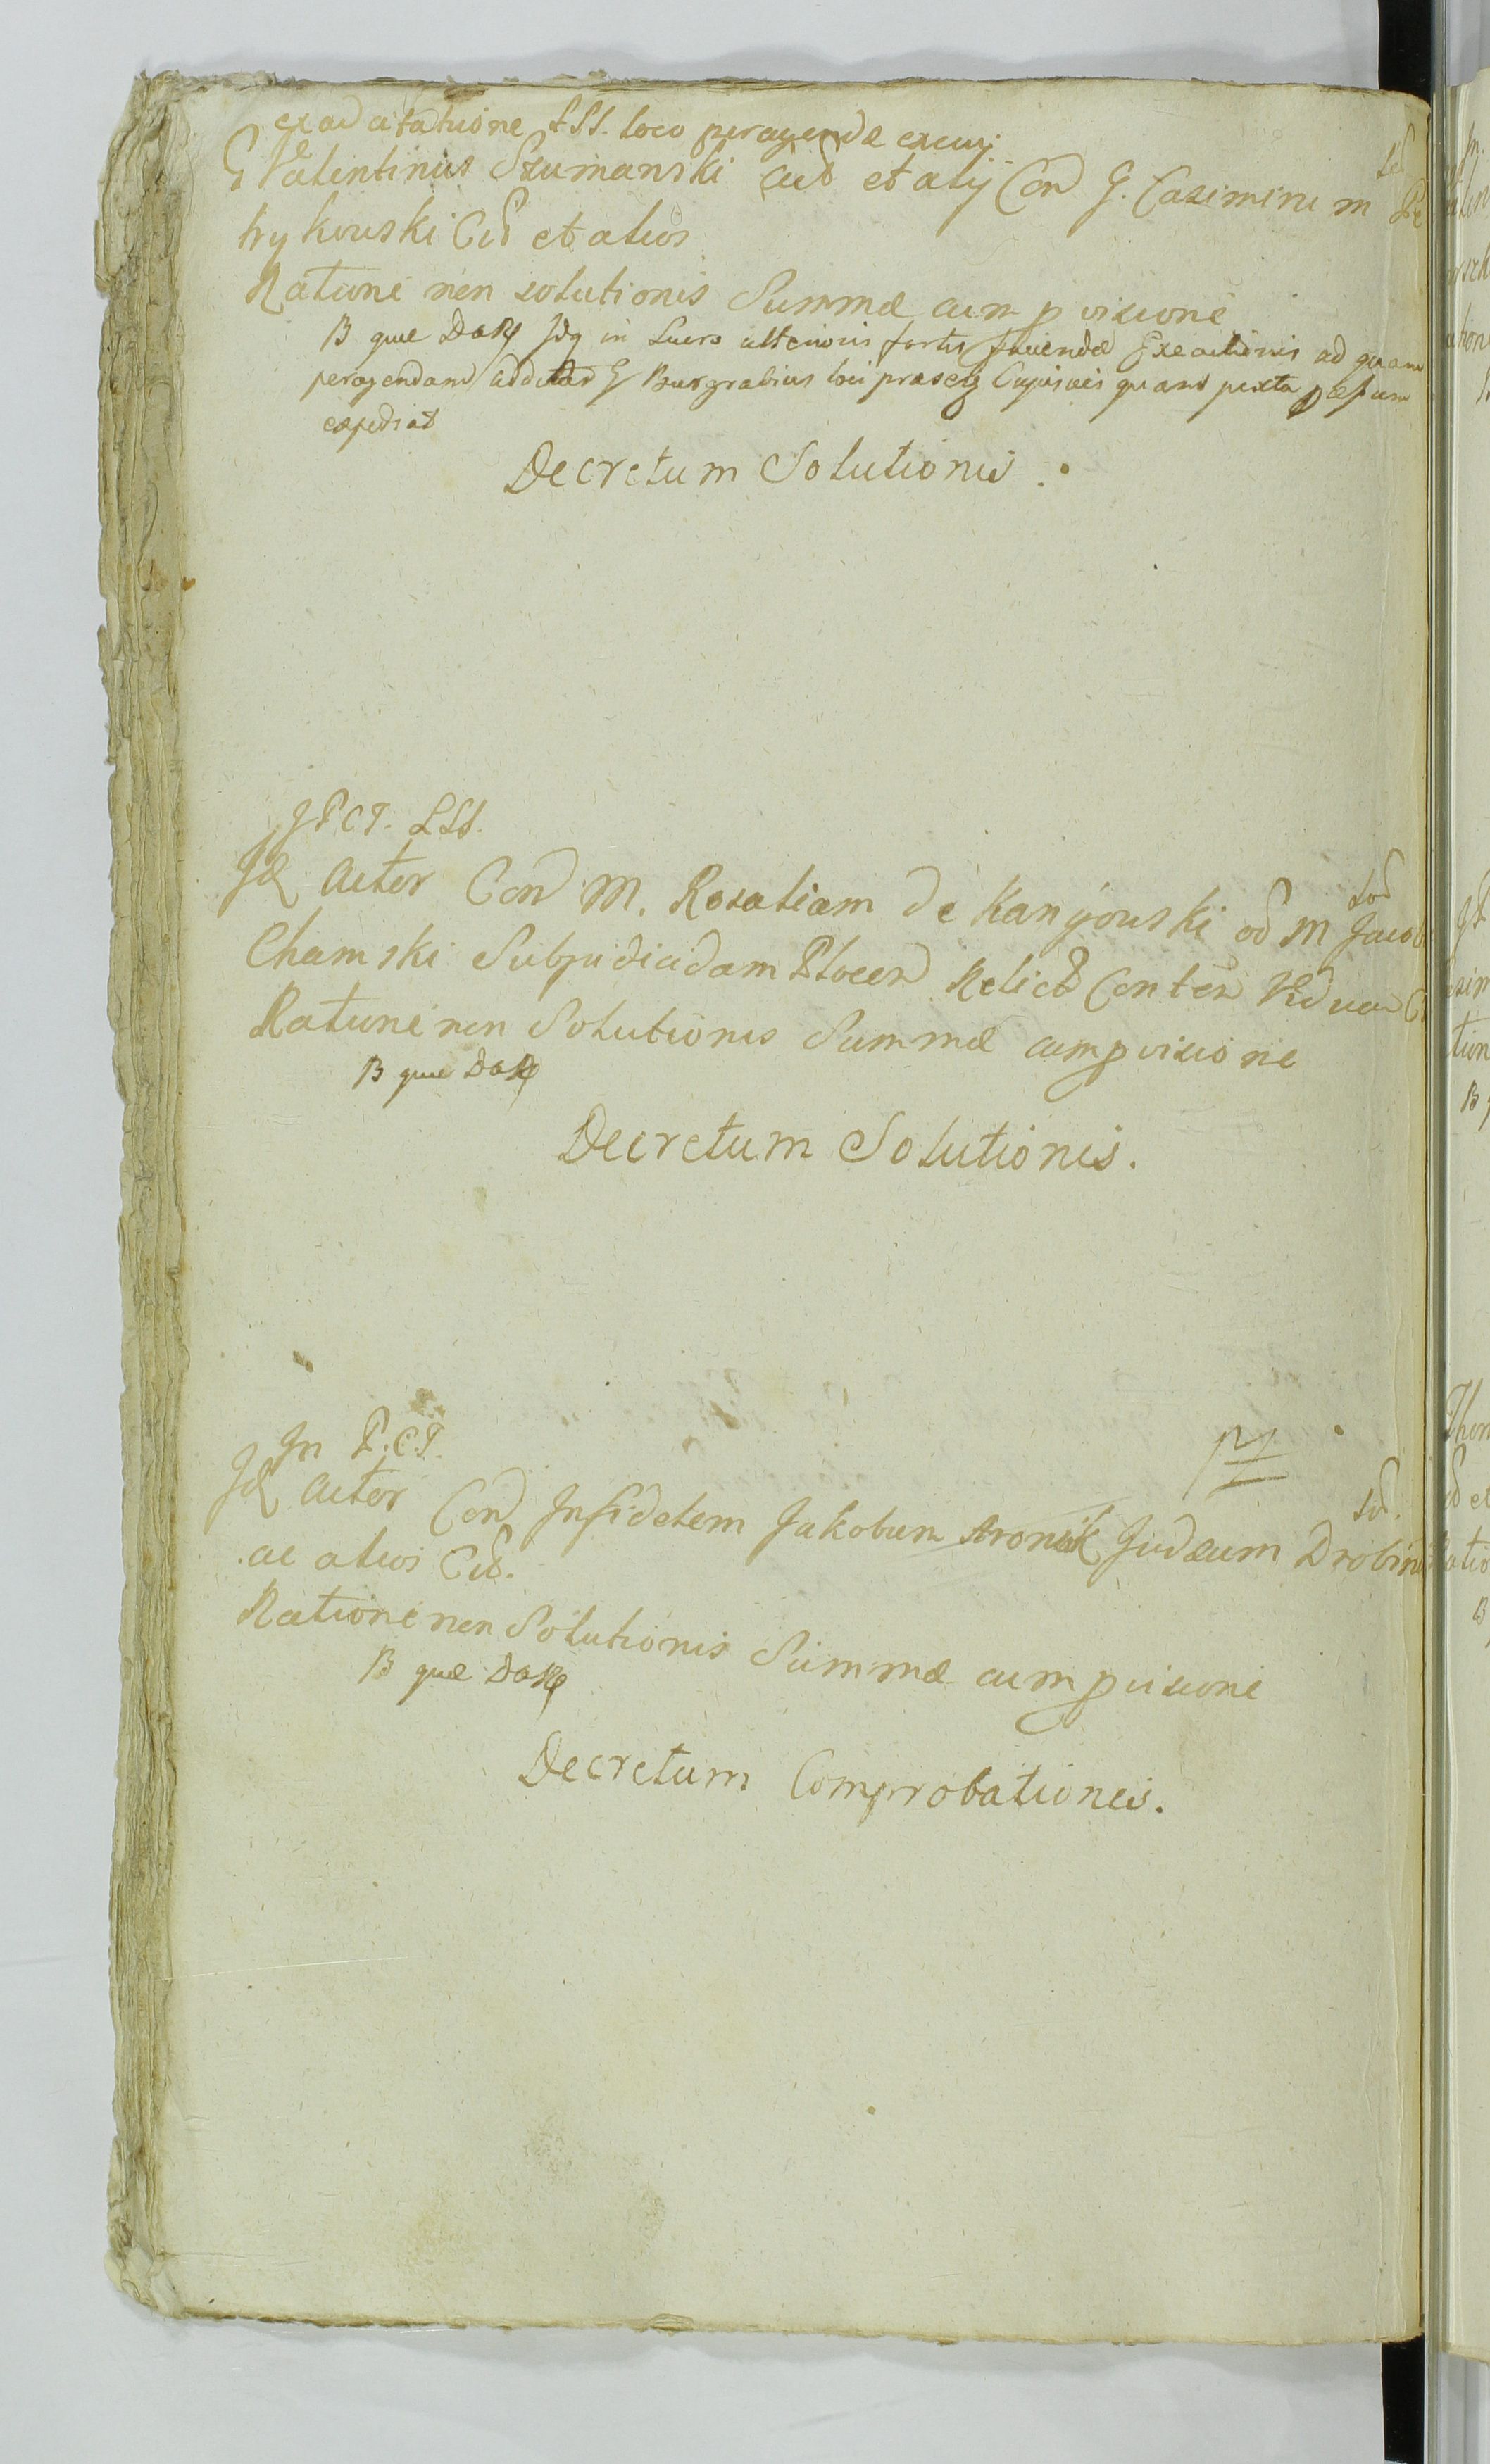 ex adcitatione LSS. loco peragendæ execuῑ
G Valentinus Szumanski act et alij Con G. Casimirum Pe
trykowski Cit et alios
Ratione non solutionis Summæ cum pvisione
B quæ DaRg in Lucro ulterioris fortis Execu­tionis ad quam
peragendam additur G Burgrabius loci præsen quam juxta
expediat
Decretum Solutionis.
JPCT. LSS.
Id Actor Con M. Rosaliam de Kanigowski od M Jacob
Chamski Subjudicadam Plocen Relict Conten Viduam
Ratione non Solutionis Summæ cum pvisione
B quæ DaR
Decretum Solutionis.
Jn P.C.T.
Id Actor Con Jnfidelem Jakobum Aronek Judæum Drobin
ac alios Cit.
Ratione non Solutionis Summæ cum pvisione
B quæ DaR
Decretum Comprobationis.